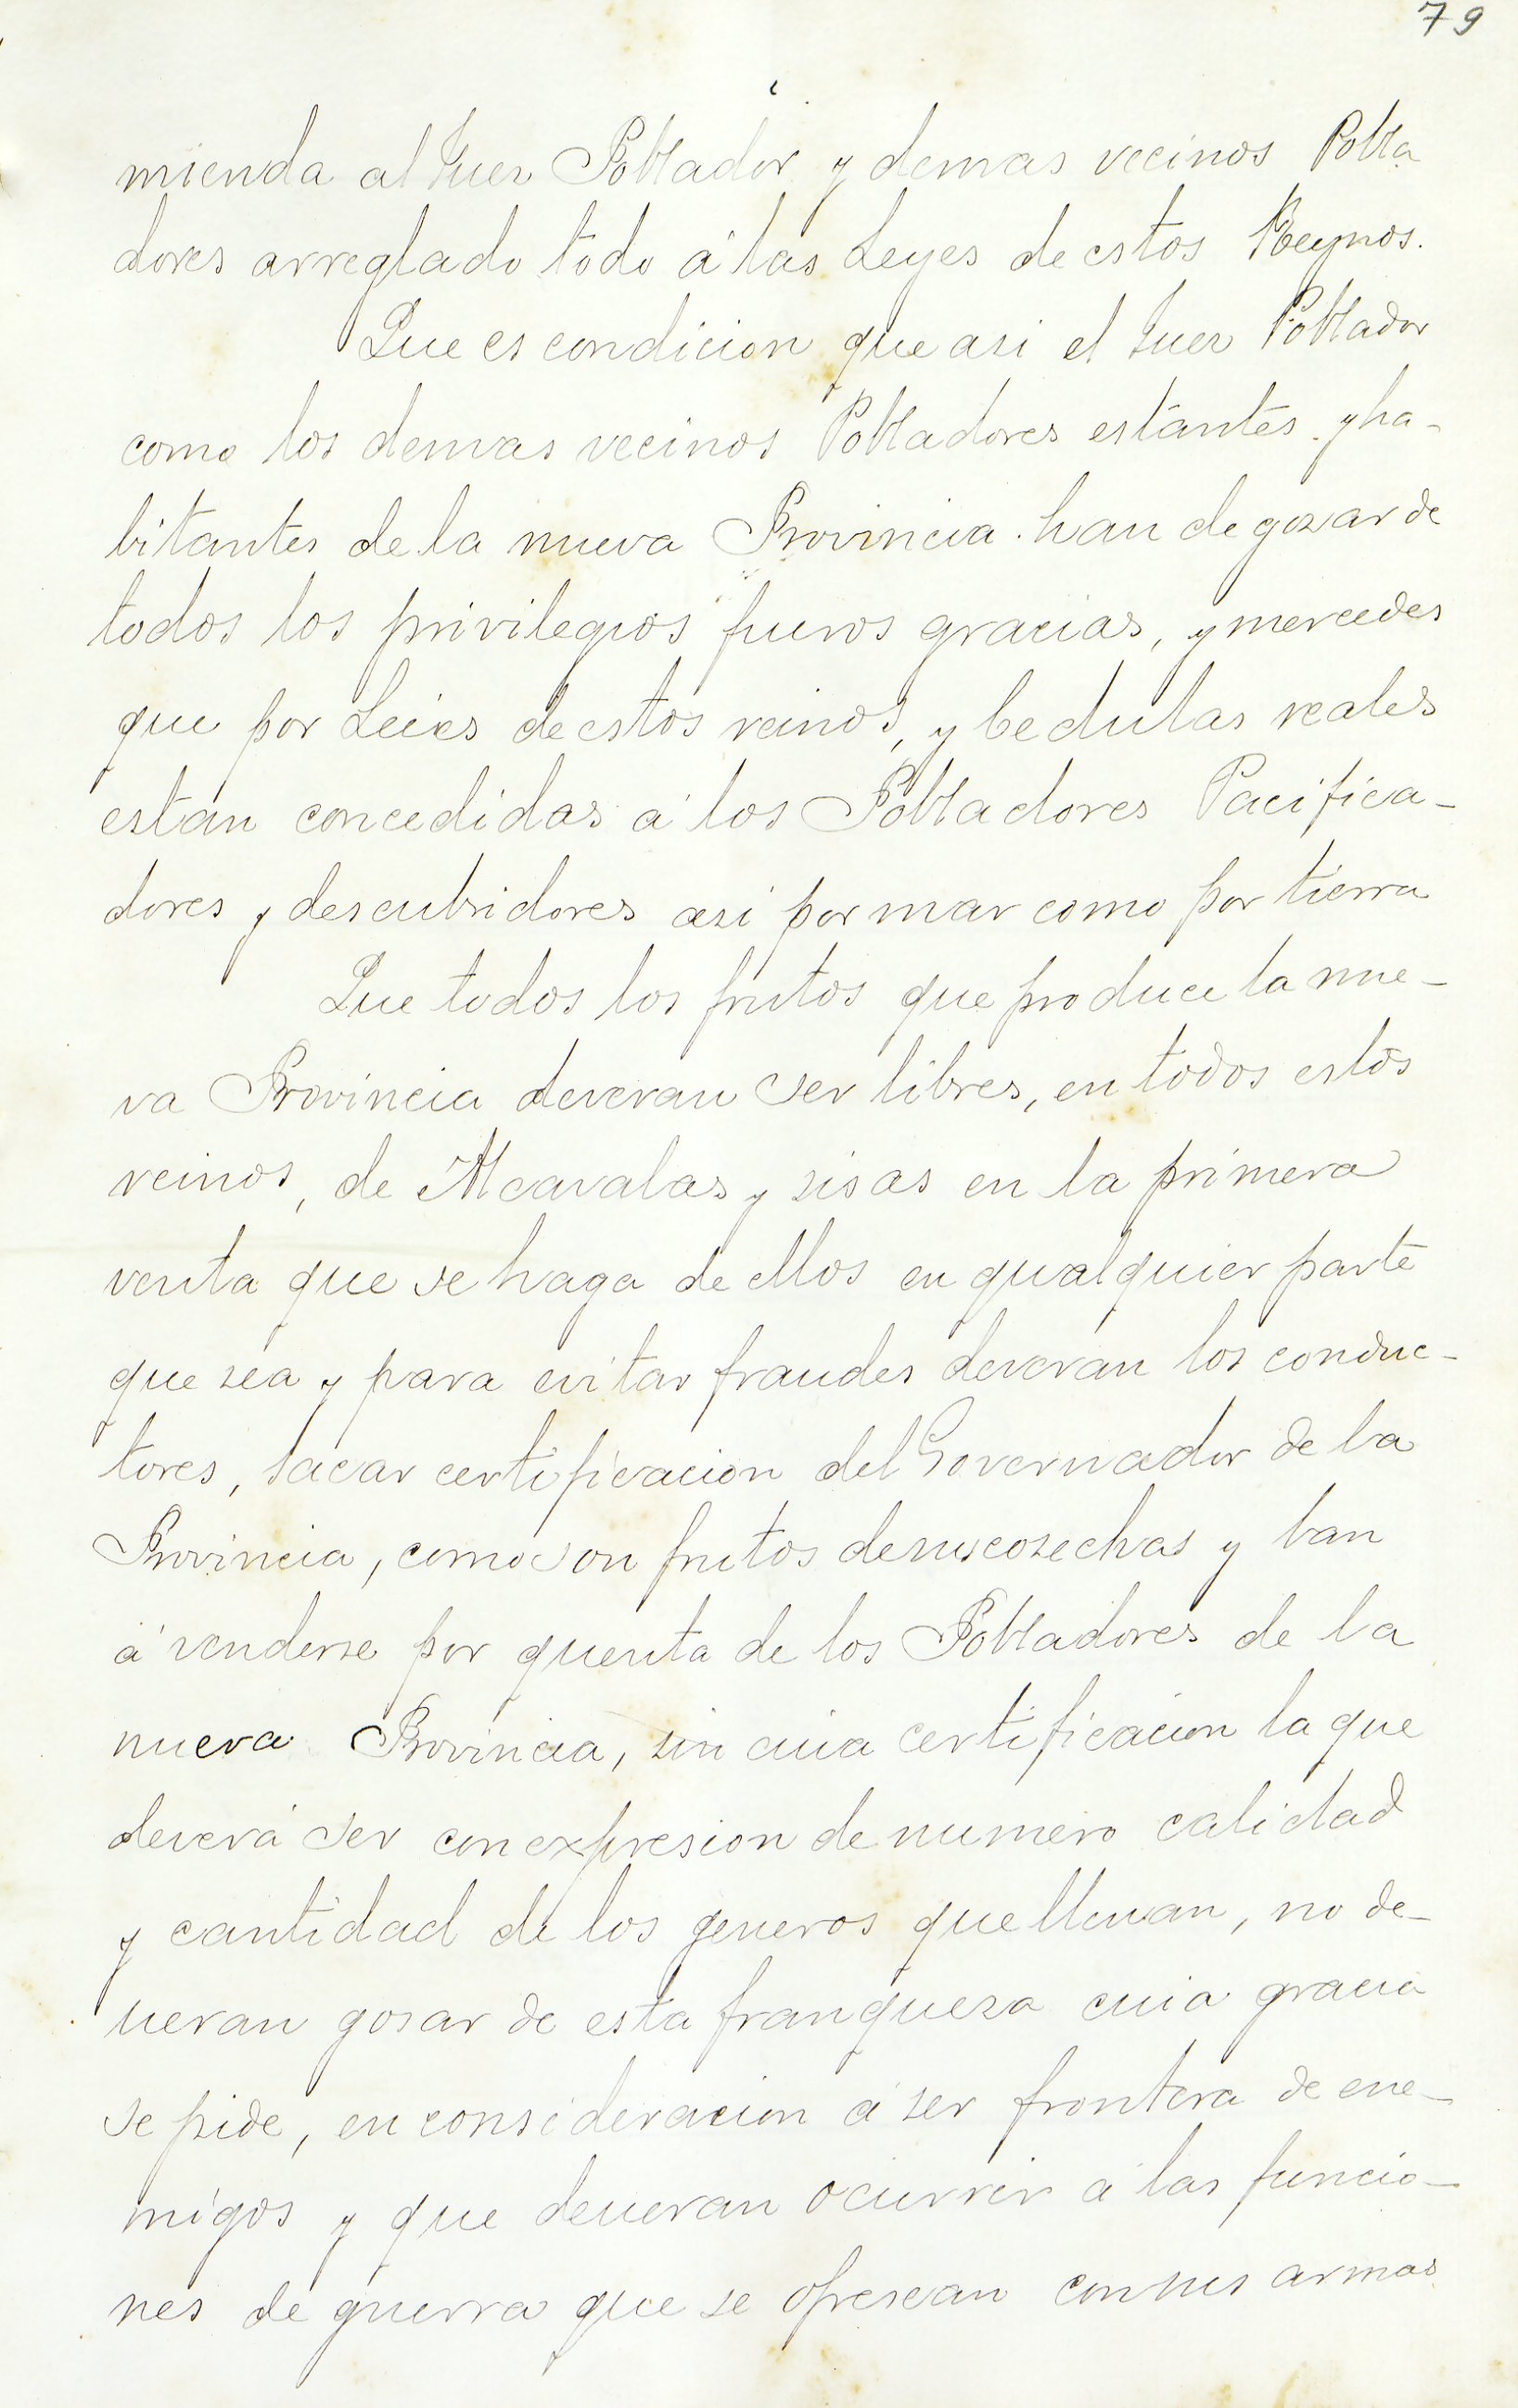 79
mienda al Juez Poblador y demas vecinos Pobla
dores arreglado todo á las Leyes de estos Reynos.
Que es condicion que asi el Juez Poblador
como los demas vecinos Pobladores estantes y ha-
bitantes de la nueva Provincia han de gozar de
todos los privilegios fueros gracias, y mercedes
que por Leies de estos reinos, y Cedulas reales
estan concedidas á los Pobladores Pacifica-
dores y descubridores asi por mar como por tierra
Que todos los frutos que produce la nue-
va Provincia deveran ser libres, en todos estos
reinos, de Alcavalas y sisas en la primera
venta que se haga de ellos en qualquier parte
que sea y para evitar fraudes deveran los conduc-
tores, sacar certificacion del Governador de la
Provincia, como son frutos de sus cosechas y ban
á venderse por quenta de los Pobladores de la
nueva Provincia, sin cuia certificacion la que
deverá ser con expresion de numero calidad
y cantidad de los generos que llevan, no de-
ueran gosar de esta franqueza cuia gracia
se pide, en consideracion á ser frontera de ene-
migos y que deueran ocurrir á las funcio-
nes de guerra que se ofrescan con sus armas